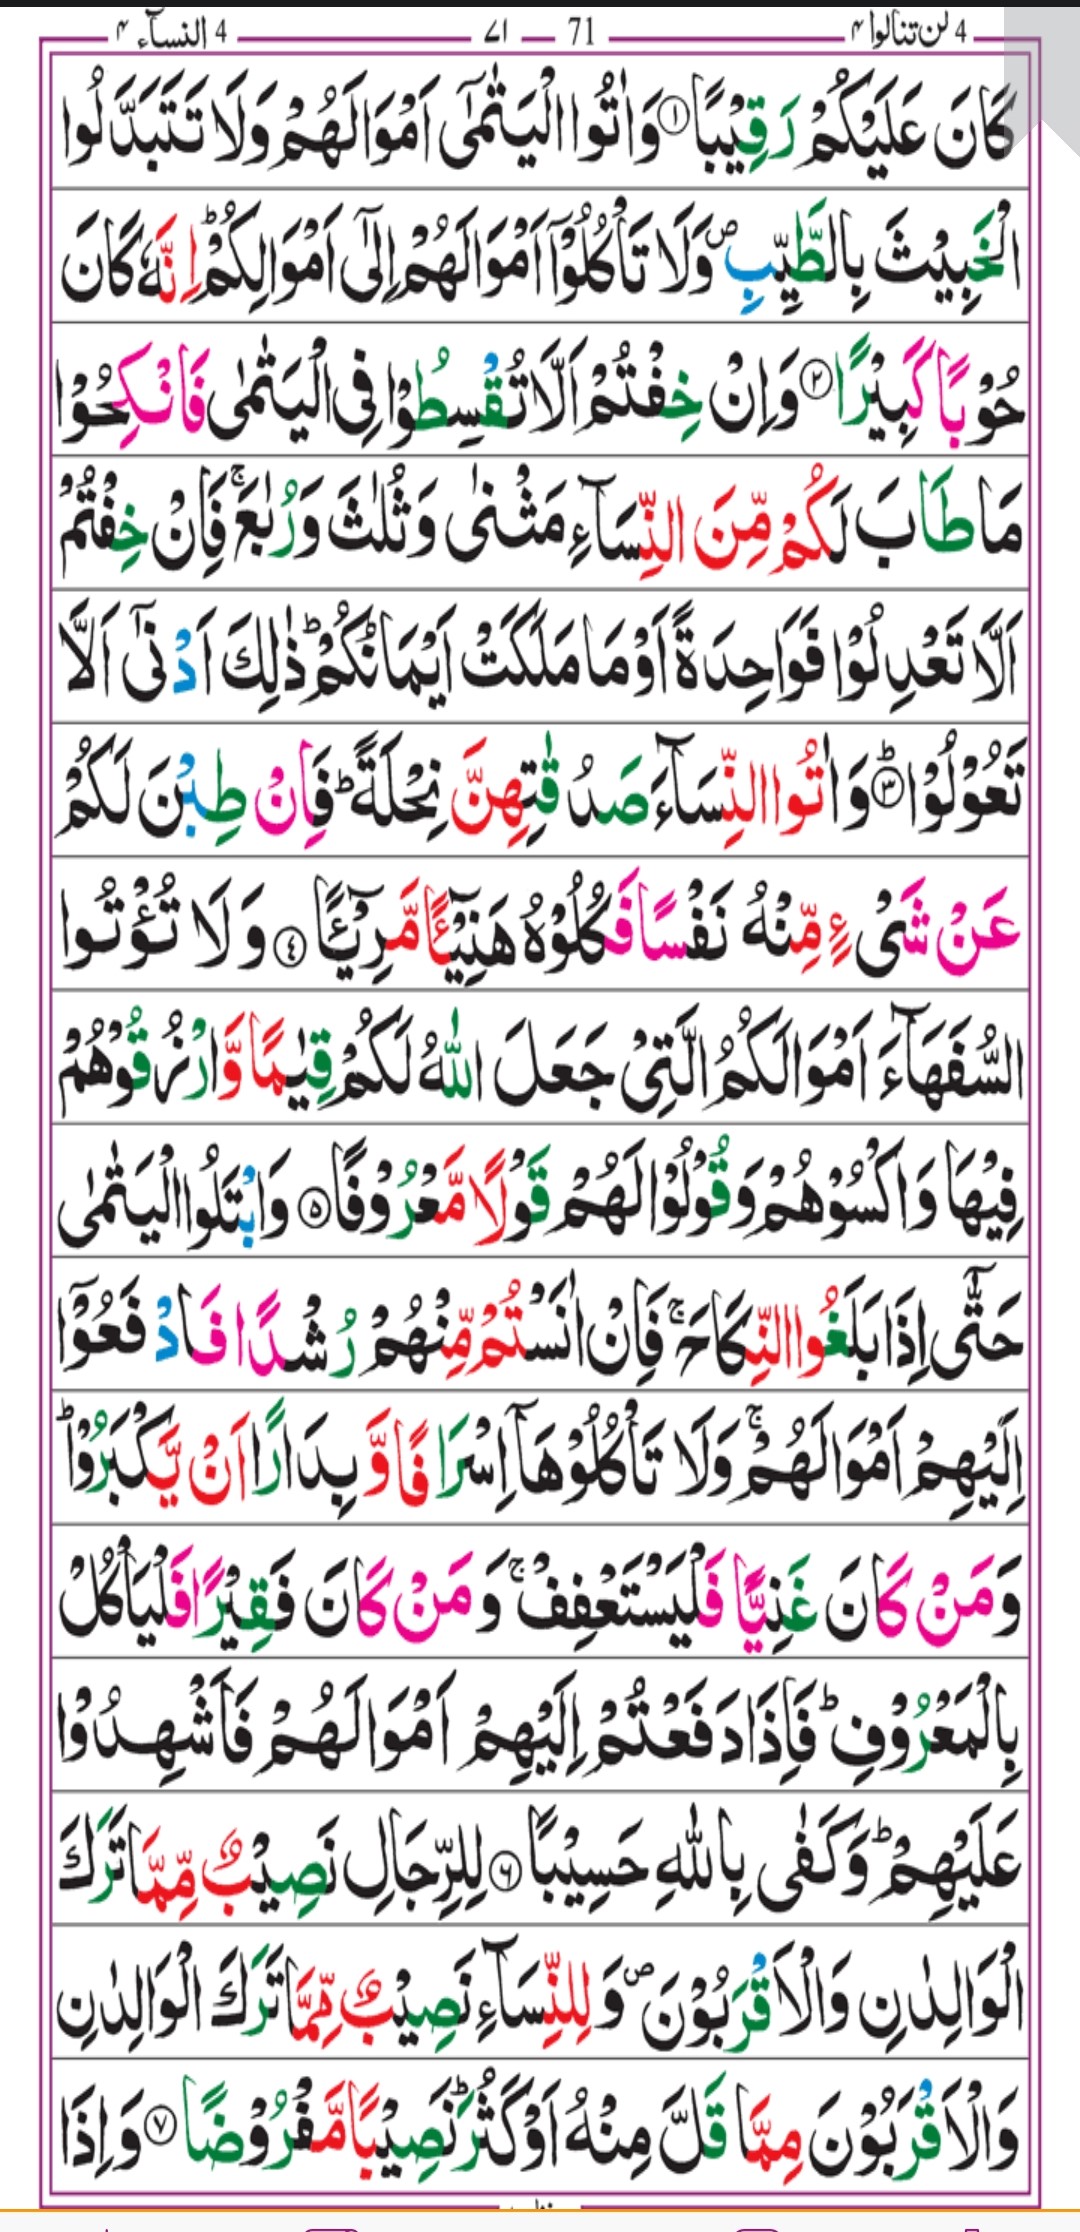 4 لن تنالوا ۴ — 71 — ۷۱ — 4 النسآء ۴
كَانَ عَلَيْكُمْ رَقِيْبًا ۝۱ وَاٰتُوا الْيَتٰمٰٓى اَمْوَالَهُمْ وَلَا تَتَبَدَّلُوا
الْخَبِيْثَ بِالطَّيِّبِ ۪ وَلَا تَاْكُلُوْٓا اَمْوَالَهُمْ اِلٰٓى اَمْوَالِكُمْ ؕ اِنَّهٗ كَانَ
حُوْبًا كَبِيْرًا ۝۲ وَاِنْ خِفْتُمْ اَلَّا تُقْسِطُوْا فِى الْيَتٰمٰى فَانْكِحُوْا
مَا طَابَ لَكُمْ مِّنَ النِّسَآءِ مَثْنٰى وَثُلٰثَ وَرُبٰعَ ۚ فَاِنْ خِفْتُمْ
اَلَّا تَعْدِلُوْا فَوَاحِدَةً اَوْ مَا مَلَكَتْ اَيْمَانُكُمْ ؕ ذٰلِكَ اَدْنٰٓى اَلَّا
تَعُوْلُوْا ۝۳ؕ وَاٰتُوا النِّسَآءَ صَدُقٰتِهِنَّ نِحْلَةً ؕ فَاِنْ طِبْنَ لَكُمْ
عَنْ شَىْءٍ مِّنْهُ نَفْسًا فَكُلُوْهُ هَنِيْٓئًا مَّرِيْٓئًا ۝۴ وَلَا تُؤْتُوا
السُّفَهَآءَ اَمْوَالَكُمُ الَّتِىْ جَعَلَ اللّٰهُ لَكُمْ قِيٰمًا وَّارْزُقُوْهُمْ
فِيْهَا وَاكْسُوْهُمْ وَقُوْلُوْا لَهُمْ قَوْلًا مَّعْرُوْفًا ۝۵ وَابْتَلُوا الْيَتٰمٰى
حَتّٰٓى اِذَا بَلَغُوا النِّكَاحَ ۚ فَاِنْ اٰنَسْتُمْ مِّنْهُمْ رُشْدًا فَادْفَعُوْٓا
اِلَيْهِمْ اَمْوَالَهُمْ ۚ وَلَا تَاْكُلُوْهَآ اِسْرَافًا وَّبِدَارًا اَنْ يَّكْبَرُوْا ؕ
وَمَنْ كَانَ غَنِيًّا فَلْيَسْتَعْفِفْ ۚ وَمَنْ كَانَ فَقِيْرًا فَلْيَاْكُلْ
بِالْمَعْرُوْفِ ؕ فَاِذَا دَفَعْتُمْ اِلَيْهِمْ اَمْوَالَهُمْ فَاَشْهِدُوْا
عَلَيْهِمْ ؕ وَكَفٰى بِاللّٰهِ حَسِيْبًا ۝۶ لِلرِّجَالِ نَصِيْبٌ مِّمَّا تَرَكَ
الْوَالِدٰنِ وَالْاَقْرَبُوْنَ ۪ وَلِلنِّسَآءِ نَصِيْبٌ مِّمَّا تَرَكَ الْوَالِدٰنِ
وَالْاَقْرَبُوْنَ مِمَّا قَلَّ مِنْهُ اَوْ كَثُرَ ؕ نَصِيْبًا مَّفْرُوْضًا ۝۷ وَاِذَا